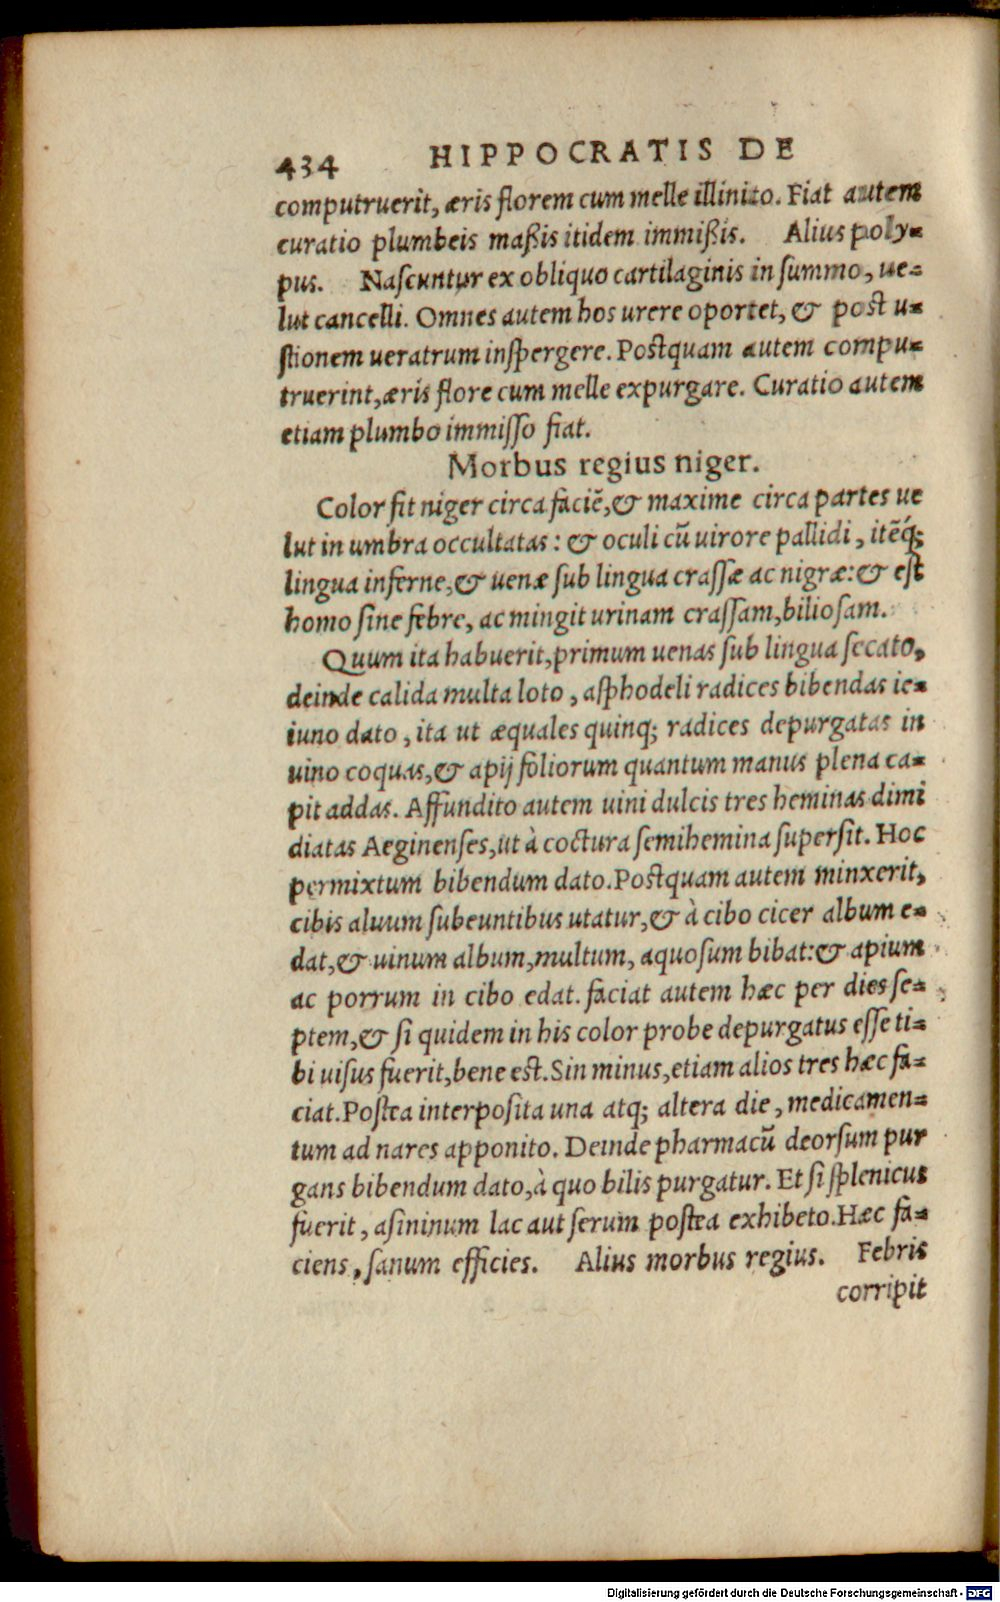 434 HIPPOCRATIS DE
computruerit, æris florem cum melle illinito. Fiat autem
curatio plumbeis maßis itidem immißis. Alius poly=
pus. Nascuntur ex obliquo cartilaginis in summo, ue=
lut cancelli. Omnes autem hos urere oportet, & post u=
stionem ueratrum inspergere. Postquam autem compu=
truerint, æris flore cum melle expurgare. Curatio autem
etiam plumbo immisso fiat.
Morbus regius niger.
Color fit niger circa faciē, & maxime circa partes ue
lut in umbra occultatas: & oculi cū uirore pallidi, itēq́;
lingua inferne, & uenæ sub lingua crassæ ac nigræ: & est
homo sine febre, ac mingit urinam crassam, biliosam.
Quum ita habuerit, primum uenas sub lingua secato,
deinde calida multa loto, asphodeli radices bibendas ie=
iuno dato, ita ut æquales quinq; radices depurgatas in
uino coquas, & apij foliorum quantum manus plena ca=
pit addas. Affundito autem uini dulcis tres heminas dimi
diatas Aeginenses, ut à coctura semihemina supersit. Hoc
permixtum bibendum dato. Postquam autem minxerit,
cibis aluum subeuntibus utatur, & à cibo cicer album e=
dat, & uinum album, multum, aquosum bibat: & apium
ac porrum in cibo edat. faciat autem hæc per dies se=
ptem, & si quidem in his color probe depurgatus esse ti=
bi uisus fuerit, bene est. Sin minus, etiam alios tres hæc fa=
ciat. Postea interposita una atq; altera die, medicamen=
tum ad nares apponito. Deinde pharmacū deorsum pur
gans bibendum dato, à quo bilis purgatur. Et si splenicus
fuerit, asininum lac aut serum postea exhibeto. Hæc fa=
ciens, sanum efficies. Alius morbus regius. Febris
corripit
Digitalisierung gefördert durch die Deutsche Forschungsgemeinschaft - DFG